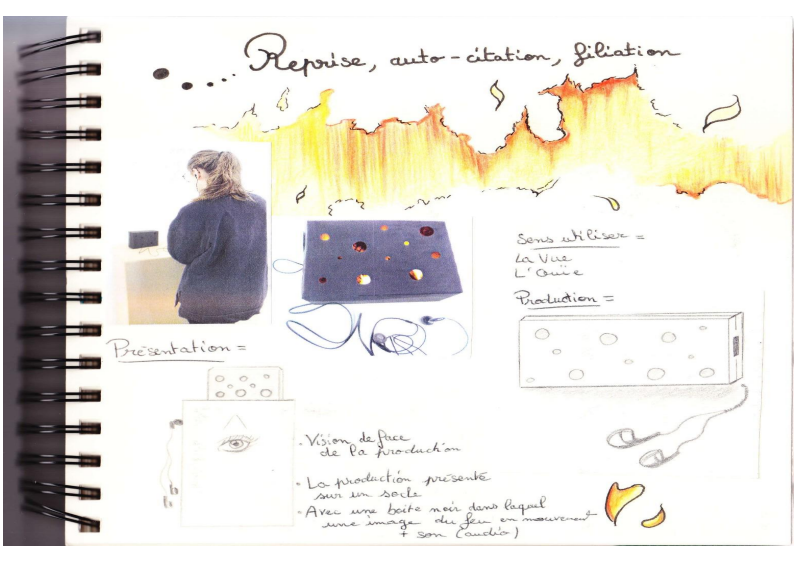 Reprise, auto-citation, filiation
Sens utiliser =
La Vue
L'Ouïe
Production =
Présentation =
• Vision de face
de la production
• La production présenté
sur un socle
• Avec une boite noir dans laquel
une image du feu en mouvement
+ son (audio)